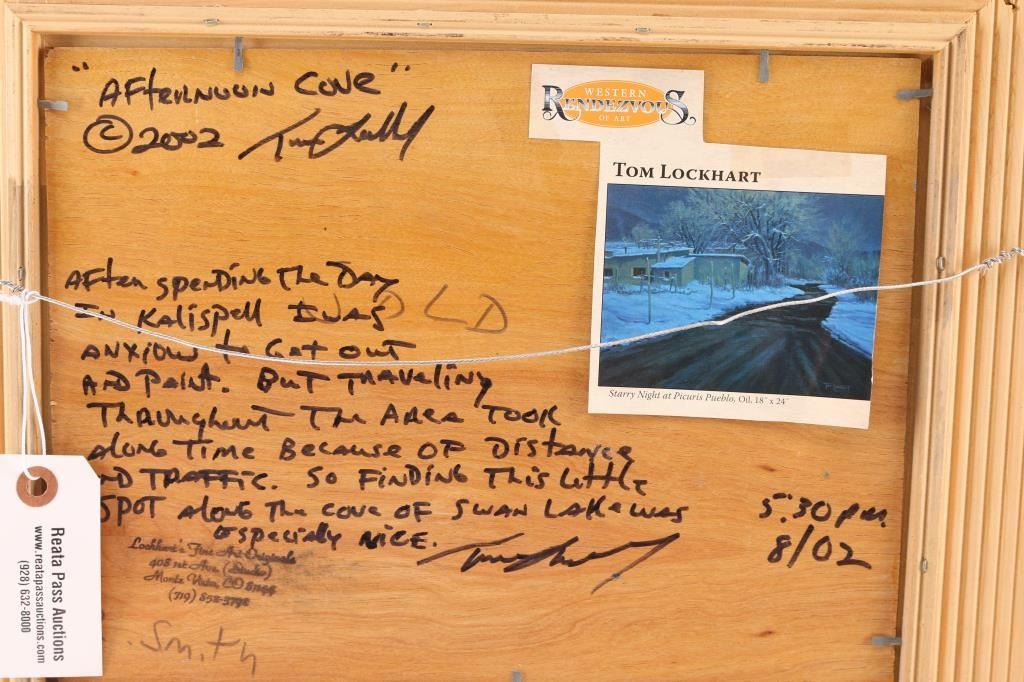 "Afternoon Cove"
© 2002
WESTERN
RENDEZVOUS
OF ART
TOM LOCKHART
Starry Night at Picuris Pueblo, Oil, 18" x 24"
After spending The Day
In Kalispell I was
OLD
anxious to Get out
And Paint. But Traveling
Throughout The Area Took
along Time Because of Distance
nd Traffic. So Finding This little
Spot along the cove of Swan Lake was
especially nice.
5:30 pm
8/02
Lockhart's Fine Art Originals
408 1st Ave. (Studio)
Monte Vista, CO 81144
(719) 852-3798
Smith
Reata Pass Auctions
www.reatapassauctions.com
(928) 632-8000